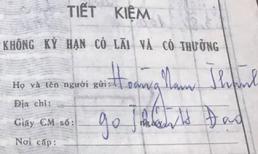 TIẾT KIỆM
KHÔNG KỲ HẠN CÓ LÃI VÀ CÓ THƯỞNG
Họ và tên người gửi: Hoàng Nam Thành
Địa chỉ:
Giấy CM số: 90 Đạo
Nơi cấp: